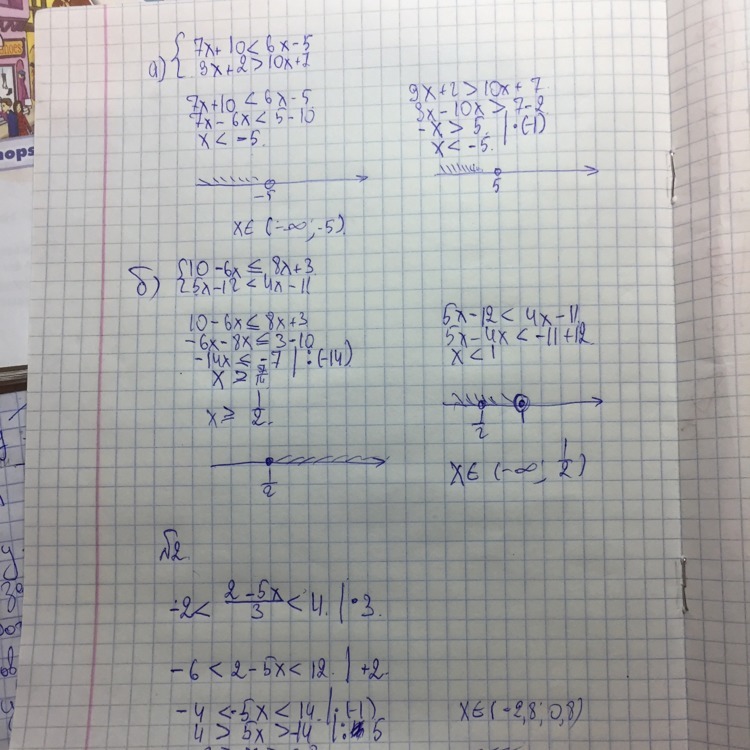 а) { 7x+10<6x-5
9x+2>10x+7
7x+10<6x-5
7x-6x<5-10
x<-5.
-5
x∈(-∞;-5)
9x+2>10x+7
9x-10x>7-2
-x>5 |·(-1)
x<-5.
5
б) { 10-6x≤8x+3
5x-12<4x-11
10-6x≤8x+3
-6x-8x≤3-10
-14x≤-7 |:(-14)
x≥7/14
x≥1/2.
1/2
5x-12<4x-11
5x-4x<-11+12
x<1
1/2 1
x∈(-∞; 1/2)
№2.
-2<(2-5x)/3<4. |·3.
-6<2-5x<12. |+2.
-4<-5x<14. |:(-1)
4>5x>-14 |:5
x∈(-2,8; 0,8)
hops